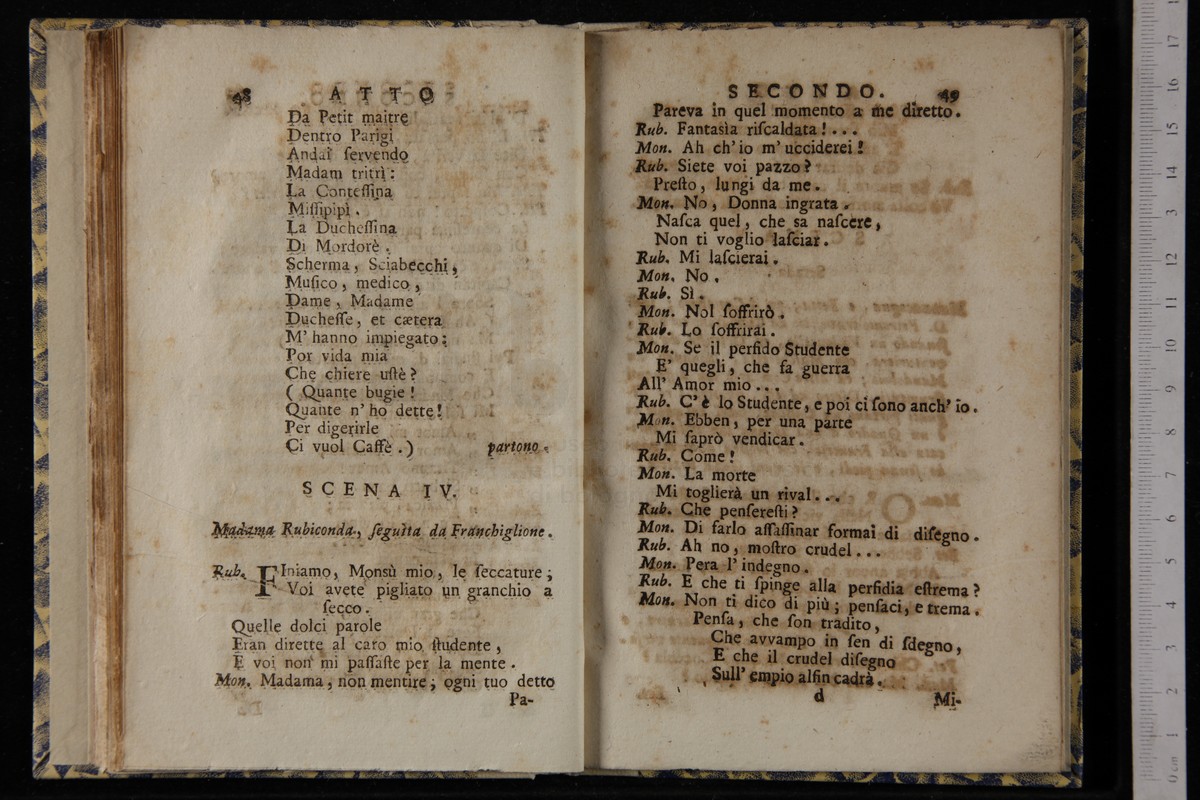 48 ATTO
Da Petit maitre
Dentro Parigi
Andai ſervendo
Madam tritrì:
La Conteſſina
Miſſipipì.
La Ducheſſina
Di Mordorè.
Scherma, Sciabecchi,
Muſico, medico,
Dame, Madame
Ducheſſe, et cætera
M' hanno impiegato:
Por vida mia
Che chiere uſtè?
( Quante bugie!
Quante n' ho dette!
Per digerirle
Ci vuol Caffè.) partono.
SCENA IV.
Madama Rubiconda, ſeguita da Franchiglione.
Rub. FIniamo, Monsù mio, le ſeccature;
Voi avete pigliato un granchio a
ſecco.
Quelle dolci parole
Eran dirette al caro mio ſtudente,
E voi non mi paſſaſte per la mente.
Mon. Madama, non mentire; ogni tuo detto
Pa-
SECONDO. 49
Pareva in quel momento a me diretto.
Rub. Fantasìa riſcaldata!...
Mon. Ah ch' io m' ucciderei!
Rub. Siete voi pazzo?
Preſto, lungi da me.
Mon. No, Donna ingrata.
Naſca quel, che sa naſcere,
Non ti voglio laſciar.
Rub. Mi laſcierai.
Mon. No.
Rub. Sì.
Mon. Nol ſoffrirò.
Rub. Lo ſoffrirai.
Mon. Se il perfido Studente
E' quegli, che fa guerra
All' Amor mio...
Rub. C' è lo Studente, e poi ci ſono anch' io.
Mon. Ebben, per una parte
Mi ſaprò vendicar.
Rub. Come!
Mon. La morte
Mi toglierà un rival...
Rub. Che penſereſti?
Mon. Di farlo aſſaſſinar formai di diſegno.
Rub. Ah no, moſtro crudel...
Mon. Pera l' indegno.
Rub. E che ti ſpinge alla perfidia eſtrema?
Mon. Non ti dico di più; penſaci, e trema.
Penſa, che ſon tradito,
Che avvampo in ſen di ſdegno,
E che il crudel diſegno
Sull' empio alfin cadrà.
d Mi-